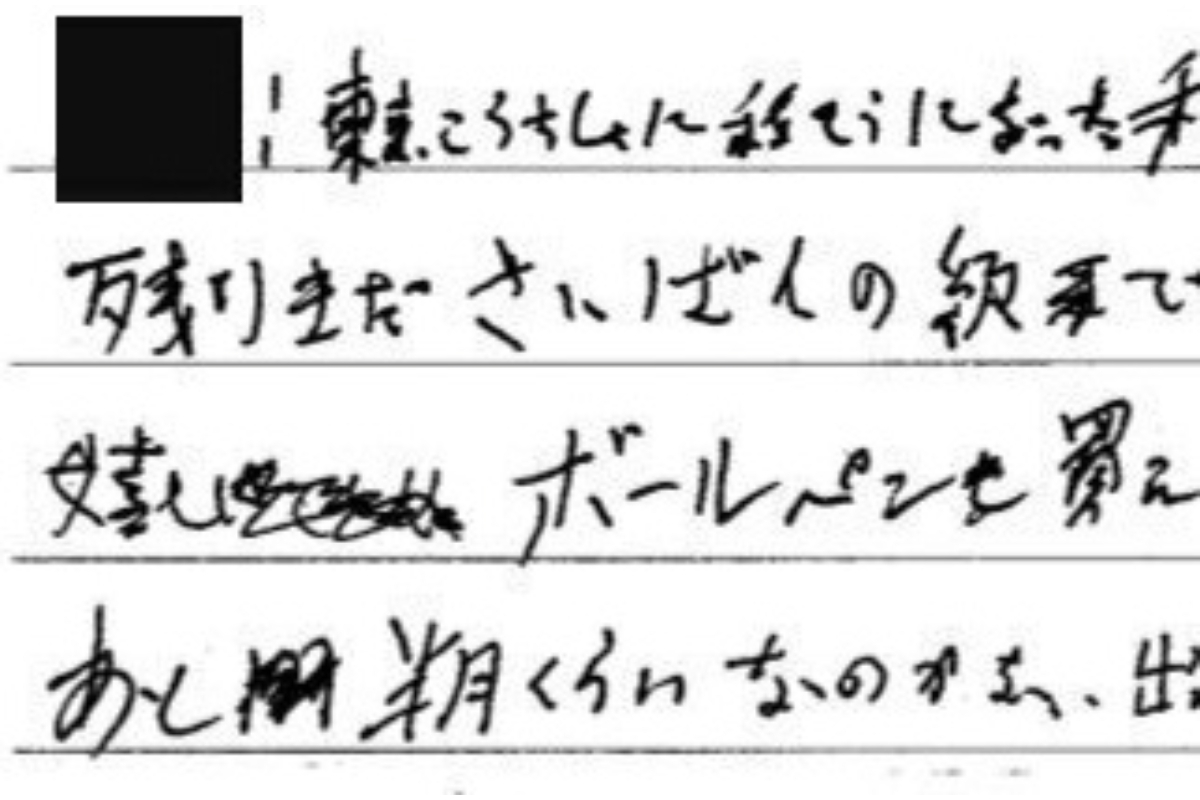 東京こうちしょに移そうになった
残りまださいばんの
嬉し ボールペンも買え
あと 半月くらいなのかな、出